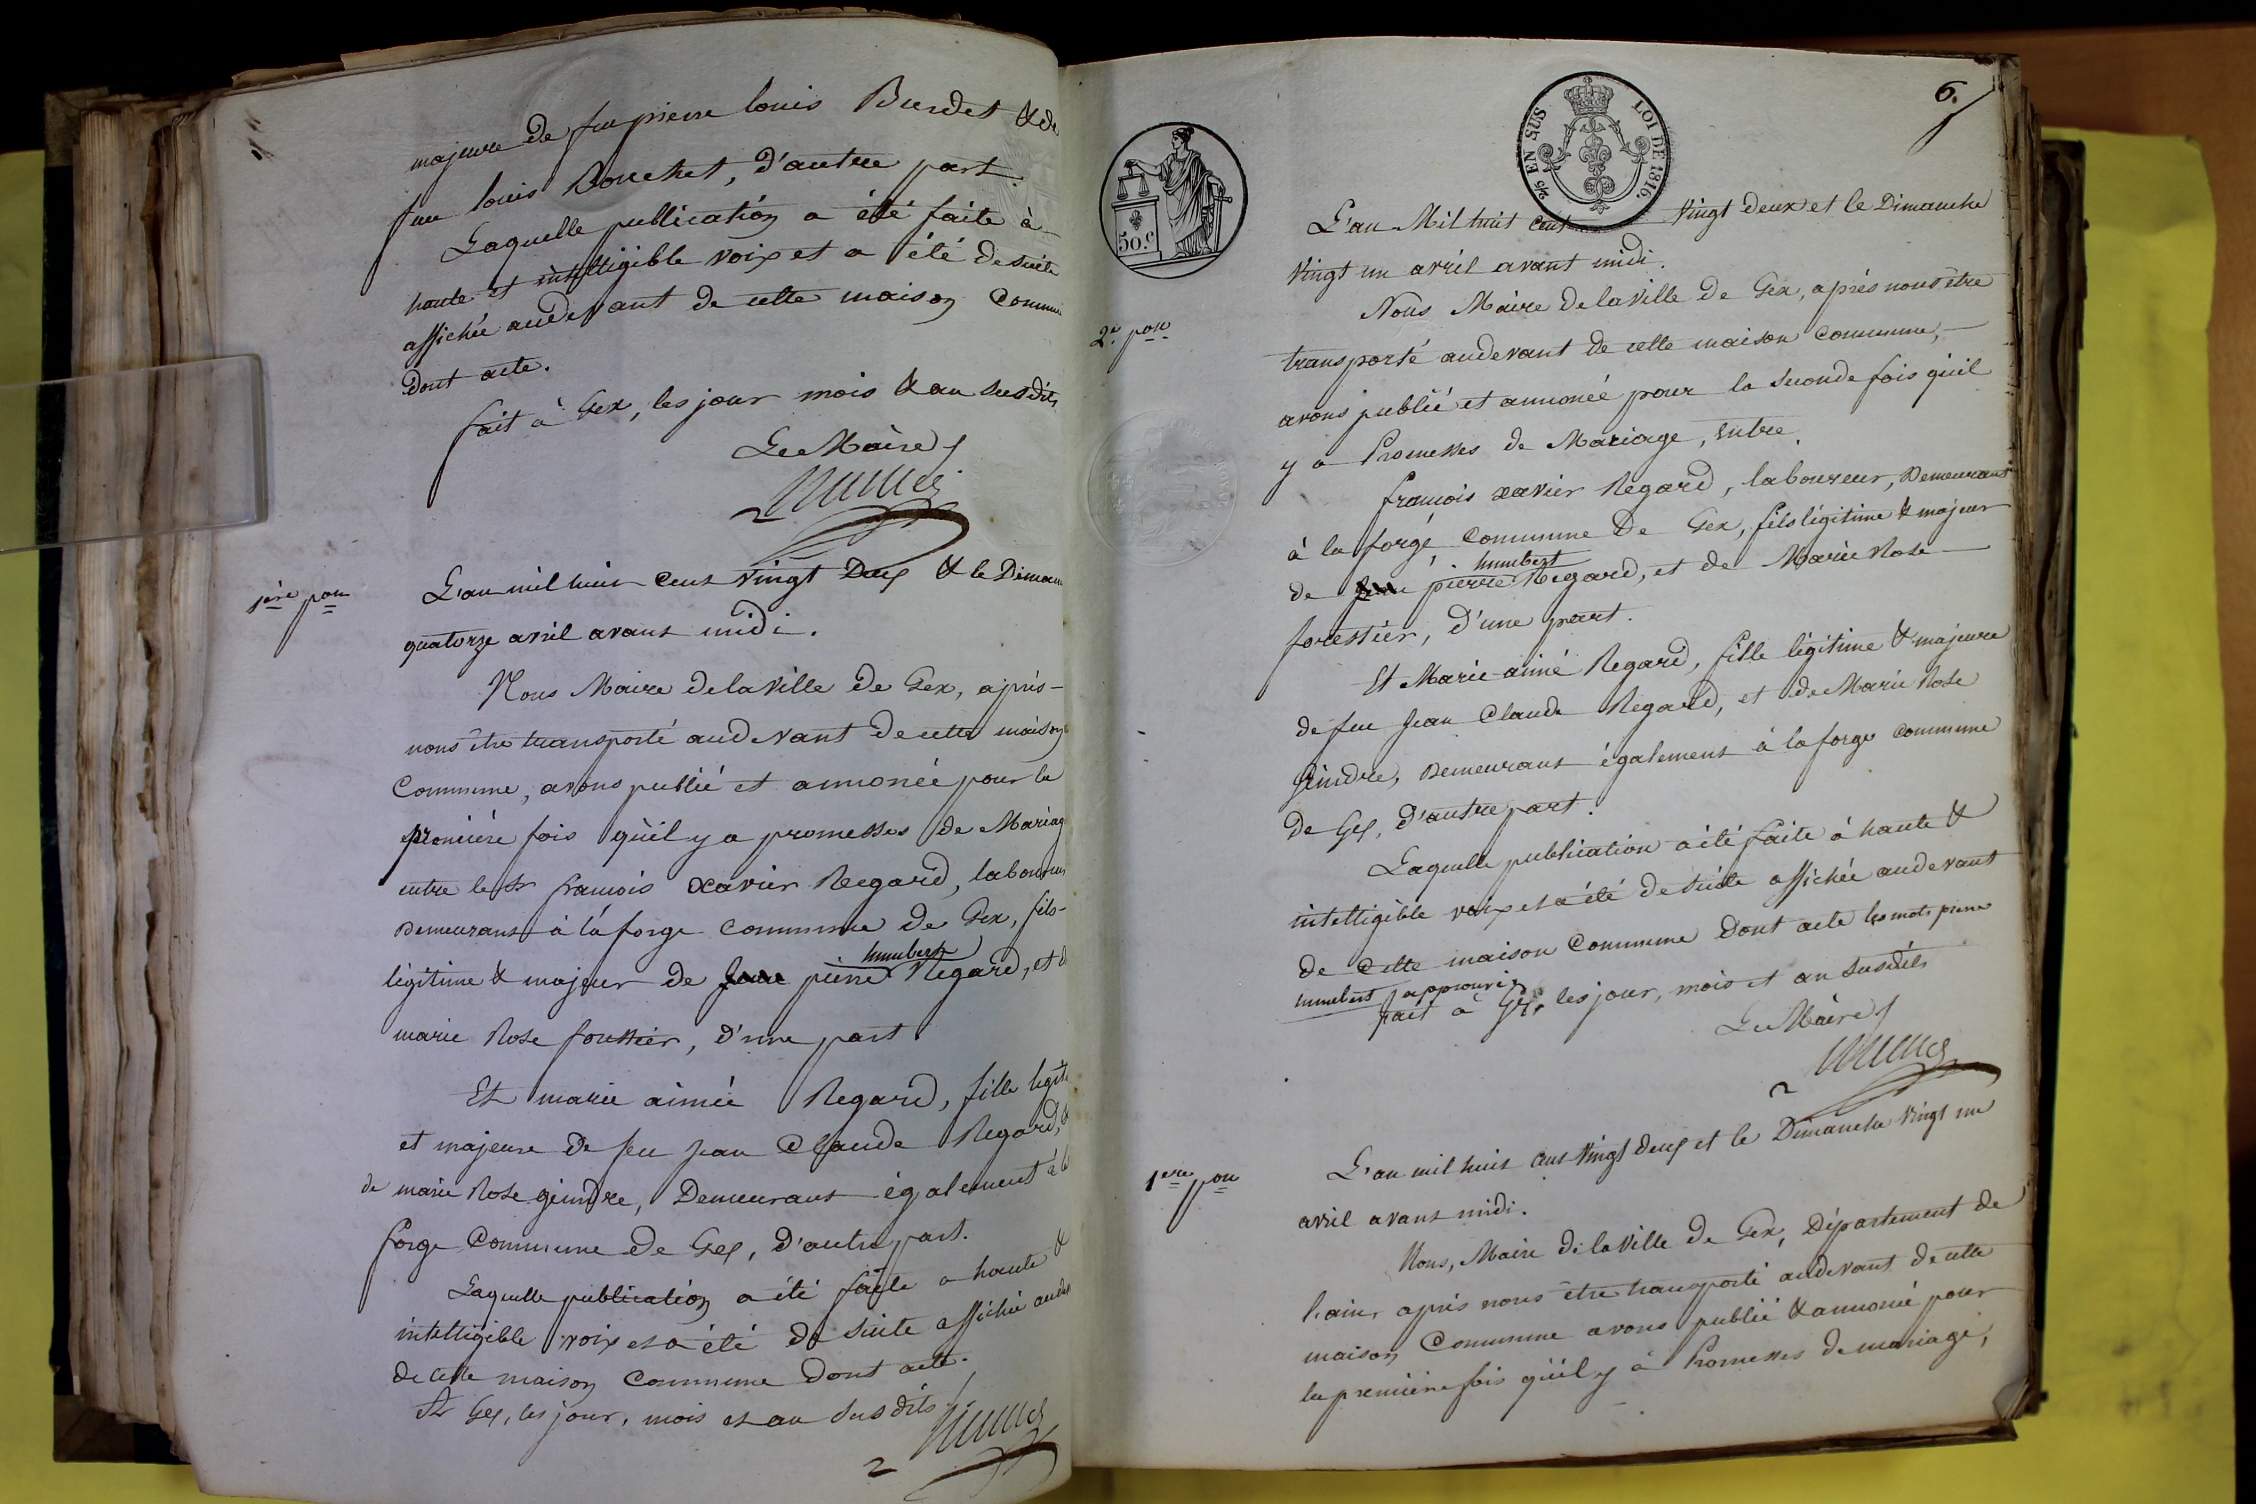 majeure de feu pierre louis Burdet & de
feu louis Bouchet, d'autre part.
Laquelle publication a été faite à
haute et intelligible voix et a été de suite
affichée audevant de cette maison Commu
Dont acte.
fait à Gex, les jour mois & an susdits
Le Maire
1ère pon
L'an mil huit cent vingt Deux & le Diman
quatorze avril avant midi.
Nous Maire de la Ville de Gex, après
nous être transporté audevant de cette maison
Commune, avons publié et annoncé pour la
première fois qu'il y a promesses de Mariag
entre le Sr francois xavier Regard, laboureur
Demeurant à la forge commune de Gex, fils
humbert
légitime & majeur de pierre Regard, et d
marie Rose foustier, d'une part
Et marie aimée Regard, fille légit
et majeure de feu jean Claude Regard, &
de marie Rose geindre, Demeurant également à la
forge Commune de Gex, d'autre part.
Laquelle publication a été faite a haute &
intelligible voix et a été de suite affichée audev
de cette maison Commune Dont acte.
A Gex, les jour, mois et an susdits
6.
25 EN SUS
LOI DE 1816.
50.c
2e. pon
L'an Mil huit Cent vingt deux et le Dimanche
vingt un avril avant midi.
Nous Maire de la Ville de Gex, après nous être
transporté audevant de cette maison commune,
avons publié et annoncé pour la seconde fois qu'il
y a Promesses de Mariage, Entre.
francois xavier Regard, laboureur, Demeurant
à la forge, commune de Gex, fils légitime & majeur
humbert
de pierre Regard, et de Marie Rose
forestier, d'une part.
Et Marie aimé Regard, fille légitime & majeure
de feu Jean Claude Regard, et de Marie Rose
Gindre, Demeurant également à la forge commune
de Gex, d'autre part.
Laquelle publication a été faite à haute &
intelligible voix et a été de suite affichée audevant
de Cette maison Commune Dont acte les mots pierre
humbert approuvés
fait à Gex, les jour, mois et an susdits
Le Maire
1ere pon
L'an mil huit cent vingt deux et le Dimanche vingt un
avril avant midi.
Nous, Maire de la Ville de Gex, Département de
l'ain, après nous être transporté audevant de cette
maison Commune avons publié & annoncé pour
la première fois qu'il y a Promesses de mariage,